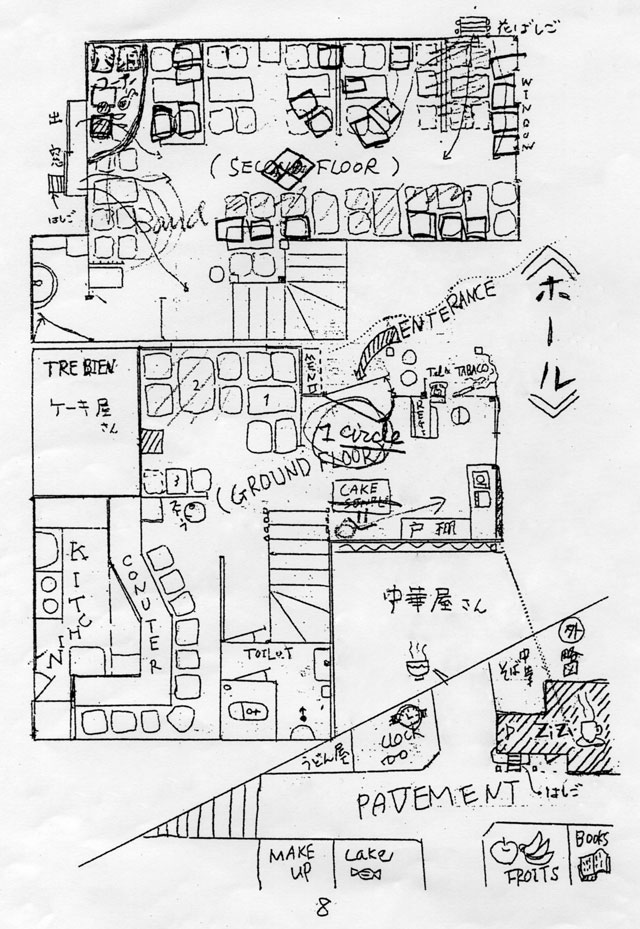 花ばしご
WINDOW
出
窓
(SECOND FLOOR)
はしご
Band
ENTERANCE
ホール
TRE BIEN
ケーキ屋
さん
MENU
Tel & TABACO
2
1
REG
1 circle
(GROUND FLOOR)
3
CAKE
SAMPLE
戸棚
KITCHIN
CONUTER
中華屋さん
TOILET
外
略
図
中華
そば
ZiZi
CLOCK
うどん屋
はしご
PAVEMENT
MAKE
UP
Cake
FROITS
BOOKS
8